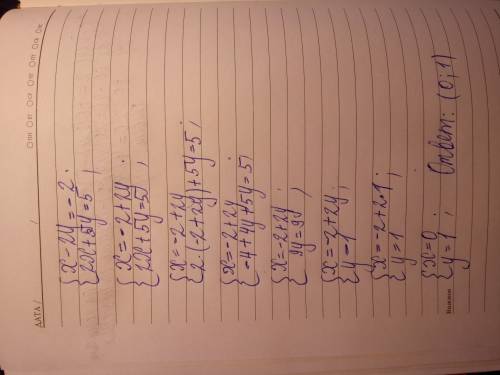 ДАТА /
Пн Вт Ср Чт Пт Сб Вс
{ x - 2y = -2;
2x + 5y = 5;
{ x = -2 + 2y;
2x + 5y = 5;
{ x = -2 + 2y
2·(-2 + 2y) + 5y = 5;
{ x = -2 + 2y
-4 + 4y + 5y = 5;
{ x = -2 + 2y;
9y = 9;
{ x = -2 + 2y;
y = 1
{ x = -2 + 2·1;
y = 1
{ x = 0;
y = 1; Ответ: (0; 1)
Важно: